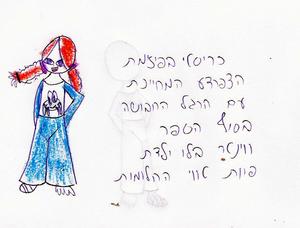 כריסטי בפיג'מת
הצפרדע המחייכת
עם הרגל החבושה
בסוף הספר
ווינטר בלו ילדת
פיות טווי החלומות